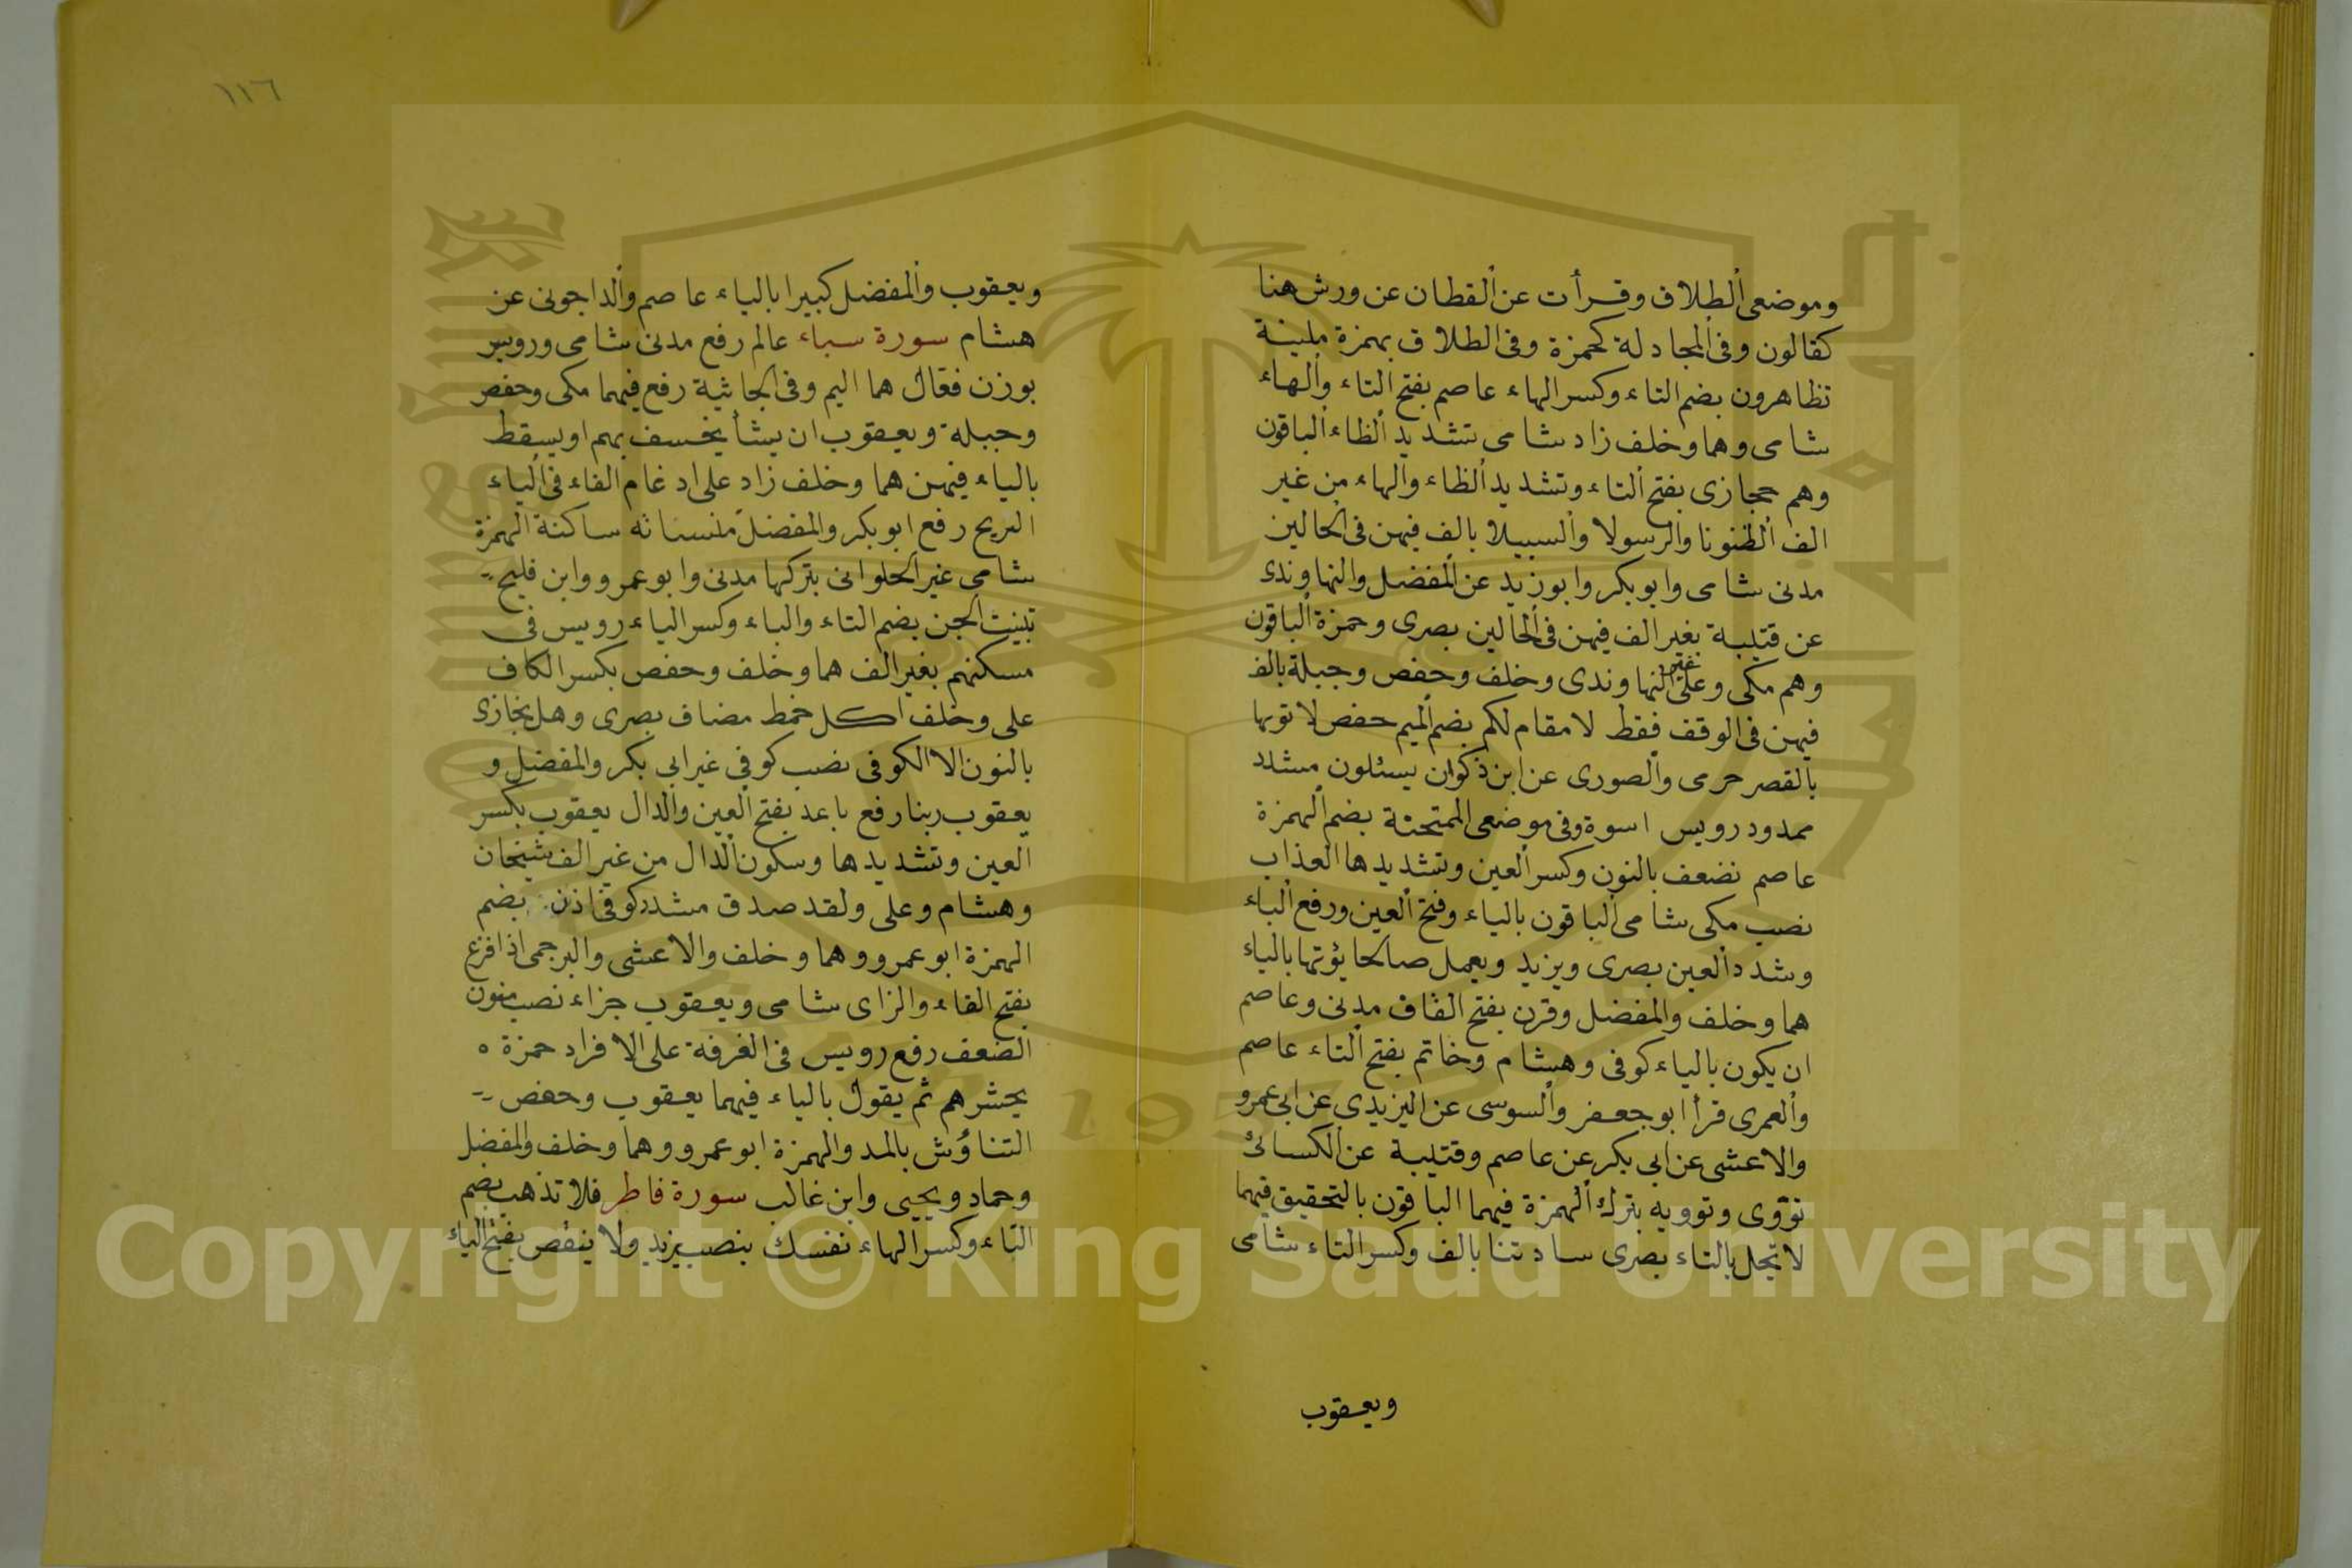 وموضعى الطلاق وقرأت عن القطان عن ورش هنا
كقالون وفى المجادلة كحمزة وفى الطلاق بهمزة ملينة
تظاهرون بضم التاء وكسر الهاء عاصم بفتح التاء والهاء
شامى وهما وخلف زاد شامى تشديد الظاء الباقون
وهم حجازى بفتح التاء وتشديد الظاء والهاء من غير
الف الظنونا والرسولا والسبيلا بالف فيهن فى الحالين
مدنى شامى وابو بكر وابو زيد عن المفضل والنهاوندى
عن قتيبة بغير الف فيهن فى الحالين بصرى وحمزة الباقون
وهم مكى وعلى غير النهاوندى وخلف وحفص وجبلة بالف
فيهن فى الوقف فقط لا مقام لكم بضم الميم حفص لا توها
بالقصر حرمى والصورى عن ابن ذكوان يسئلون مشدد
ممدود رويس اسوة وفى موضعى الممتحنة بضم الهمزة
عاصم نضعف بالنون وكسر العين وتشديدها العذاب
نصب مكى شامى الباقون بالياء وفتح العين ورفع الباء
وشدد العين بصرى ويزيد ويعمل صالحا يؤتها بالياء
هما وخلف والمفضل وقرن بفتح القاف مدنى وعاصم
ان يكون بالياء كوفى وهشام وخاتم بفتح التاء عاصم
والعمرى قرأ ابو جعفر والسوسى عن اليزيدى عن ابى عمرو
والاعشى عن ابى بكر عن عاصم وقتيبة عن الكسائى
تؤوى وتوويه بترك الهمزة فيهما الباقون بالتحقيق فيهما
لا تحل بالتاء بصرى ساداتنا بالف وكسر التاء شامى
ويعقوب
١١٦
ويعقوب والمفضل كبيرا بالياء عاصم والداجونى عن
هشام سورة سباء عالم رفع مدنى شامى ورويس
بوزن فعّال هما اليم وفى الجاثية رفع فيهما مكى وحفص
وجبلة ويعقوب ان يشأ يخسف بهم او يسقط
بالياء فيهن هما وخلف زاد على ادغام الفاء فى الباء
الريح رفع ابو بكر والمفضل منسأته ساكنة الهمزة
شامى غير الحلوانى بتركها مدنى وابو عمرو وابن فليح
تبينت الجن بضم التاء والباء وكسر الياء رويس فى
مسكنهم بغير الف هما وخلف وحفص بكسر الكاف
على وخلف اكل خمط مضاف بصرى وهل نجازى
بالنون الا الكوفى نصب كوفى غير ابى بكر والمفضل و
يعقوب ربنا رفع باعد بفتح العين والدال يعقوب بكسر
العين وتشديدها وسكون الدال من غير الف شيخان
وهشام وعلى ولقد صدق مشدد كوفى اذن بضم
الهمزة ابو عمرو وهما وخلف والاعشى والبرجمى اذا فزع
بفتح الفاء والزاى شامى ويعقوب جزاء نصب منون
الضعف رفع رويس فى الغرفة على الافراد حمزة ه
يحشرهم ثم يقول بالياء فيهما يعقوب وحفص
التناؤش بالمد والهمزة ابو عمرو وهما وخلف والمفضل
وحماد ويحيى وابن غالب سورة فاطر فلا تذهب بضم
التاء وكسر الهاء نفسك بنصب يزيد ولا ينقص بفتح الياء
Copyright © King Saud University